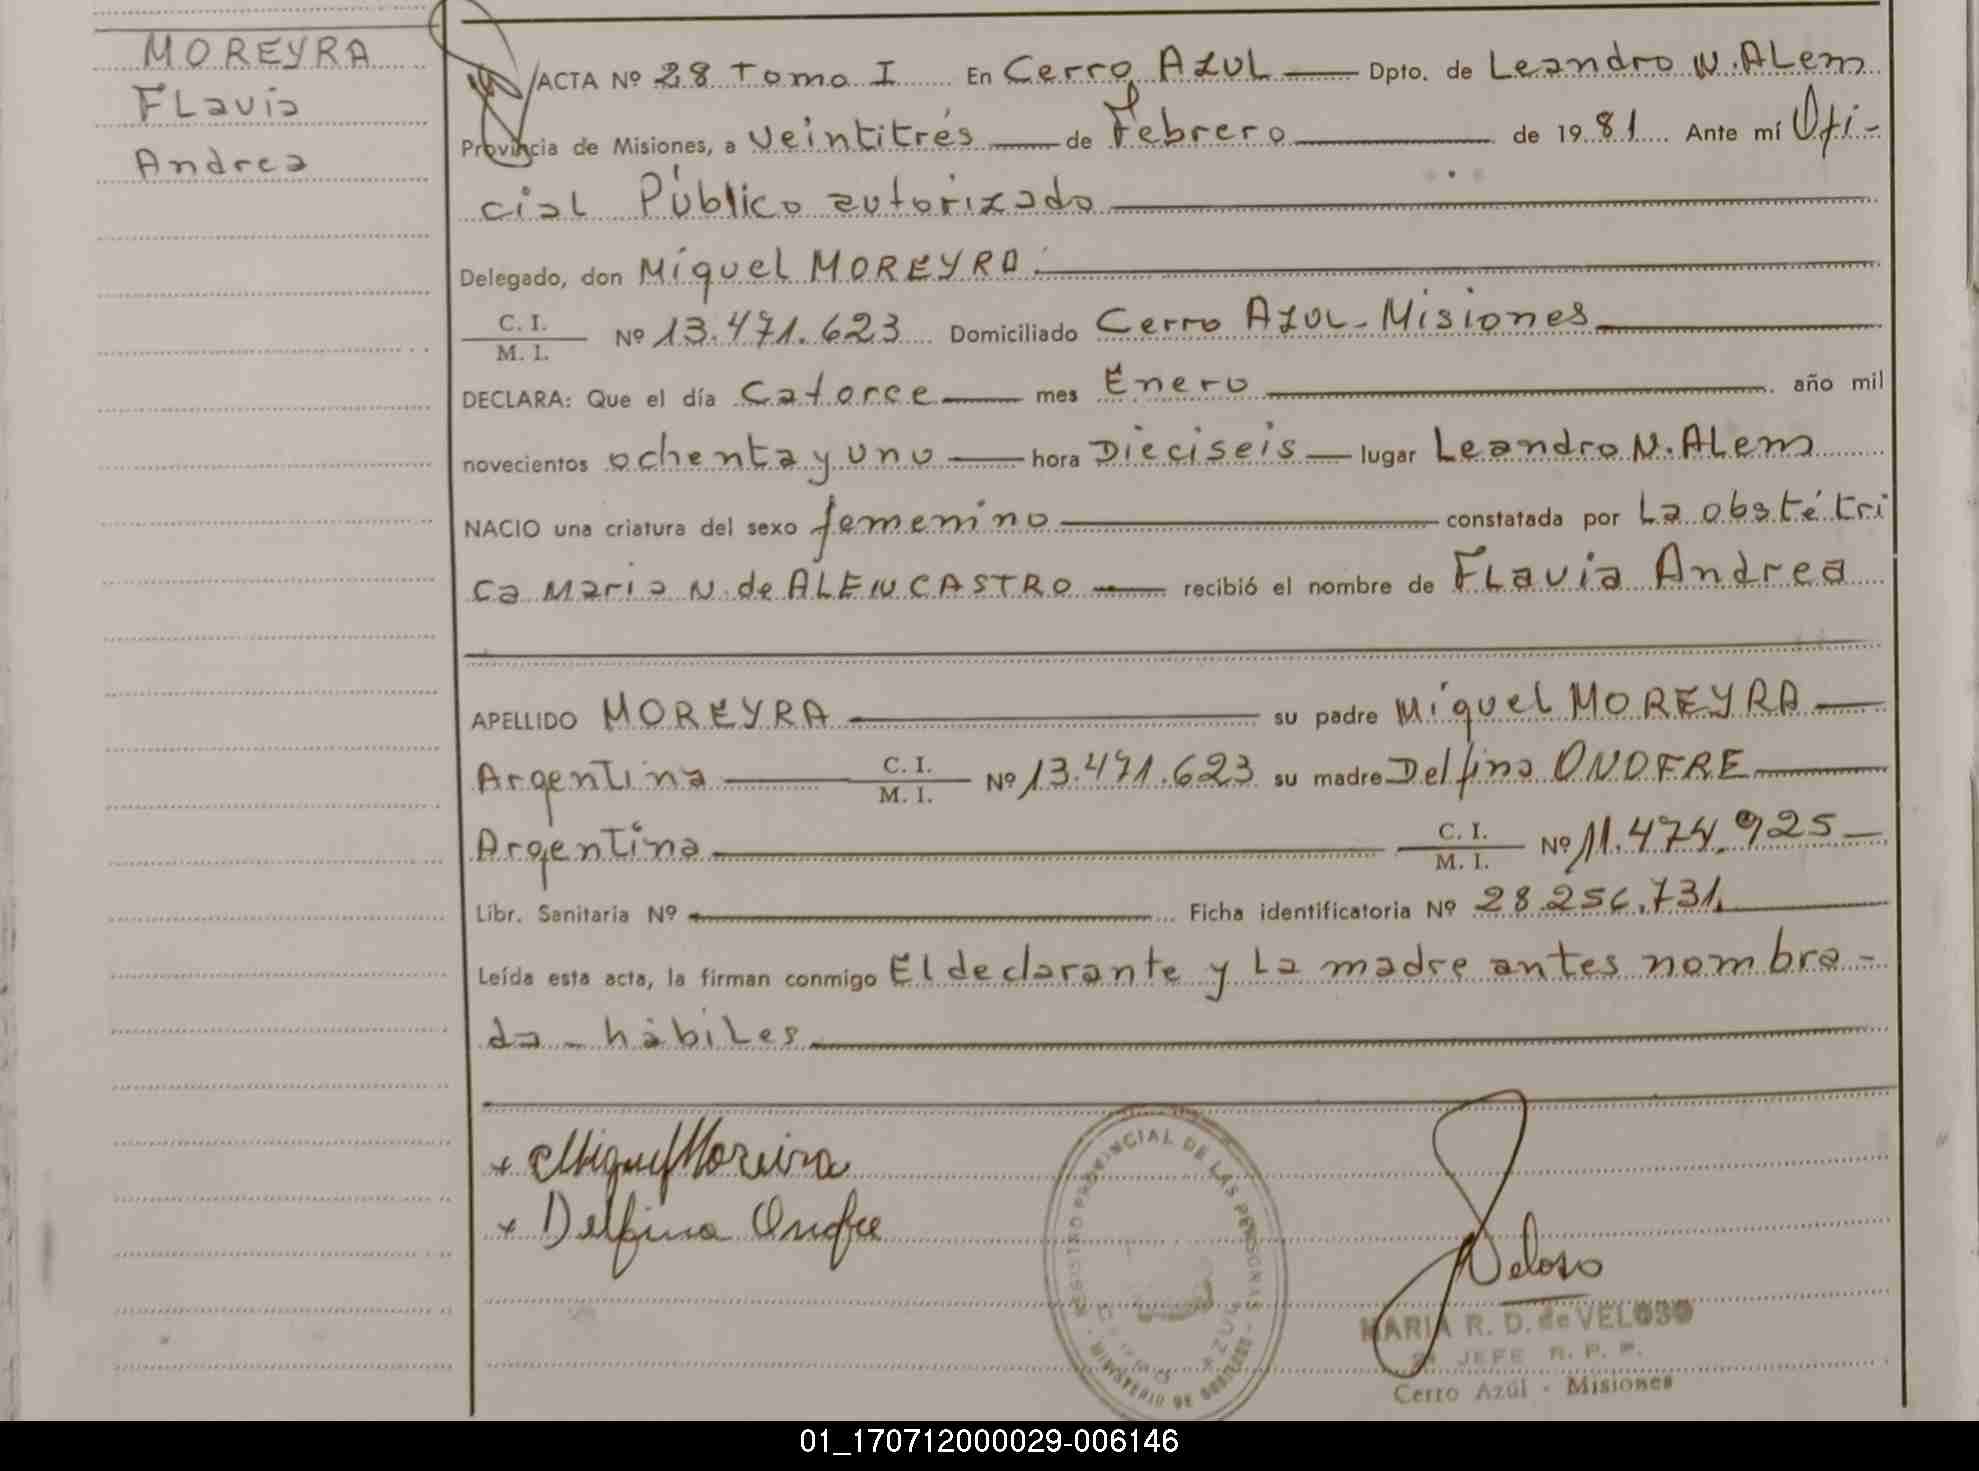 MOREYRA
Flavia
Andrea
ACTA Nº 28 Tomo I En Cerro Azul Dpto. de Leandro N. Alem
Provincia de Misiones, a veintitrés de Febrero de 1981 Ante mí Ofi-
cial Público autorizado
Delegado, don Miguel MOREYRA
C. I.
M. I. Nº 13.471.623 Domiciliado Cerro Azul - Misiones
DECLARA: Que el día Catorce mes Enero año mil
novecientos ochenta y uno hora Dieciseis lugar Leandro N. Alem
NACIO una criatura del sexo femenino constatada por La obstétri
ca Maria N. de ALENCASTRO recibió el nombre de Flavia Andrea
APELLIDO MOREYRA su padre Miguel MOREYRA
Argentina C. I. M. I. Nº 13.471.623 su madre Delfina ONOFRE
Argentina C. I. M. I. Nº 11.474.925
Libr. Sanitaria Nº Ficha identificatoria Nº 28.256.731
Leída esta acta, la firman conmigo El declarante y la madre antes nombra-
da - hábiles
+ Miguel Moreira
+ Delfina Onofre
REGISTRO PROVINCIAL DE LAS PERSONAS
MINISTERIO DE GOBIERNO
CERRO AZUL
Veloso
MARIA R. D. de VELOSO
JEFE R. P. P.
Cerro Azúl - Misiones
01_170712000029-006146